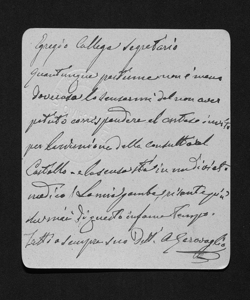 Egregio Collega Segretario
quantunque postuma non è meno
doverosa la scusarmi del non aver
potuto corrispondere al cortese invito
per la riunione della consulta al
Castello e la scusa sta in mediis stato
medico! La mia gamba
di questo infame tempo.
Tutto e sempre suo Dott. A Geravaglia